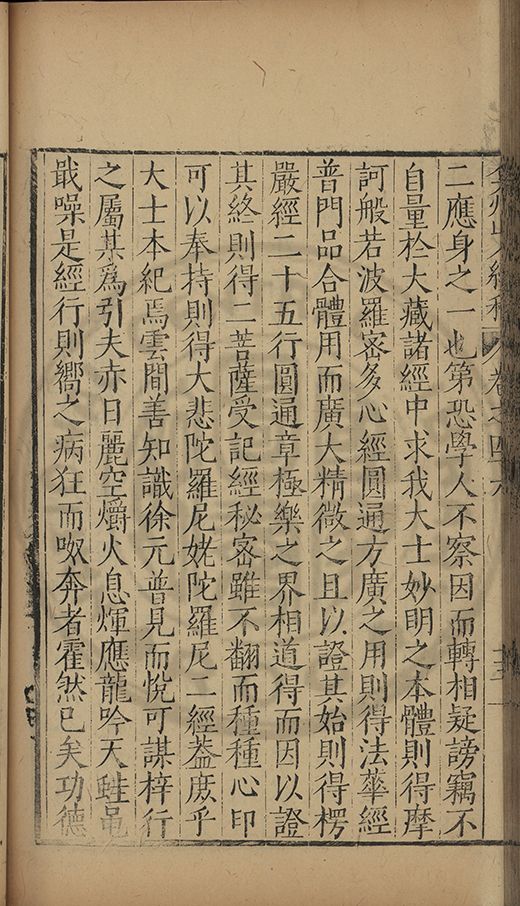 弇州山人續稿 卷之四六
二應身之一也第恐學人不察因而轉相疑謗竊不
自量於大藏諸經中求我大士妙明之本體則得摩
訶般若波羅密多心經圓通方廣之用則得法華經
普門品合體用而廣大精微之且以證其始則得楞
嚴經二十五行圓通章極樂之界相道得而因以證
其終則得二菩薩受記經秘密雖不翻而種種心印
可以奉持則得大悲陀羅尼姥陀羅尼二經葢庶乎
大士本紀焉雲間善知識徐元普見而悅可謀梓行
之屬某爲引夫赤日麗空爝火息煇應龍吟天蛙黽
戢噪是經行則嚮之病狂而呶奔者霍然已矣功德